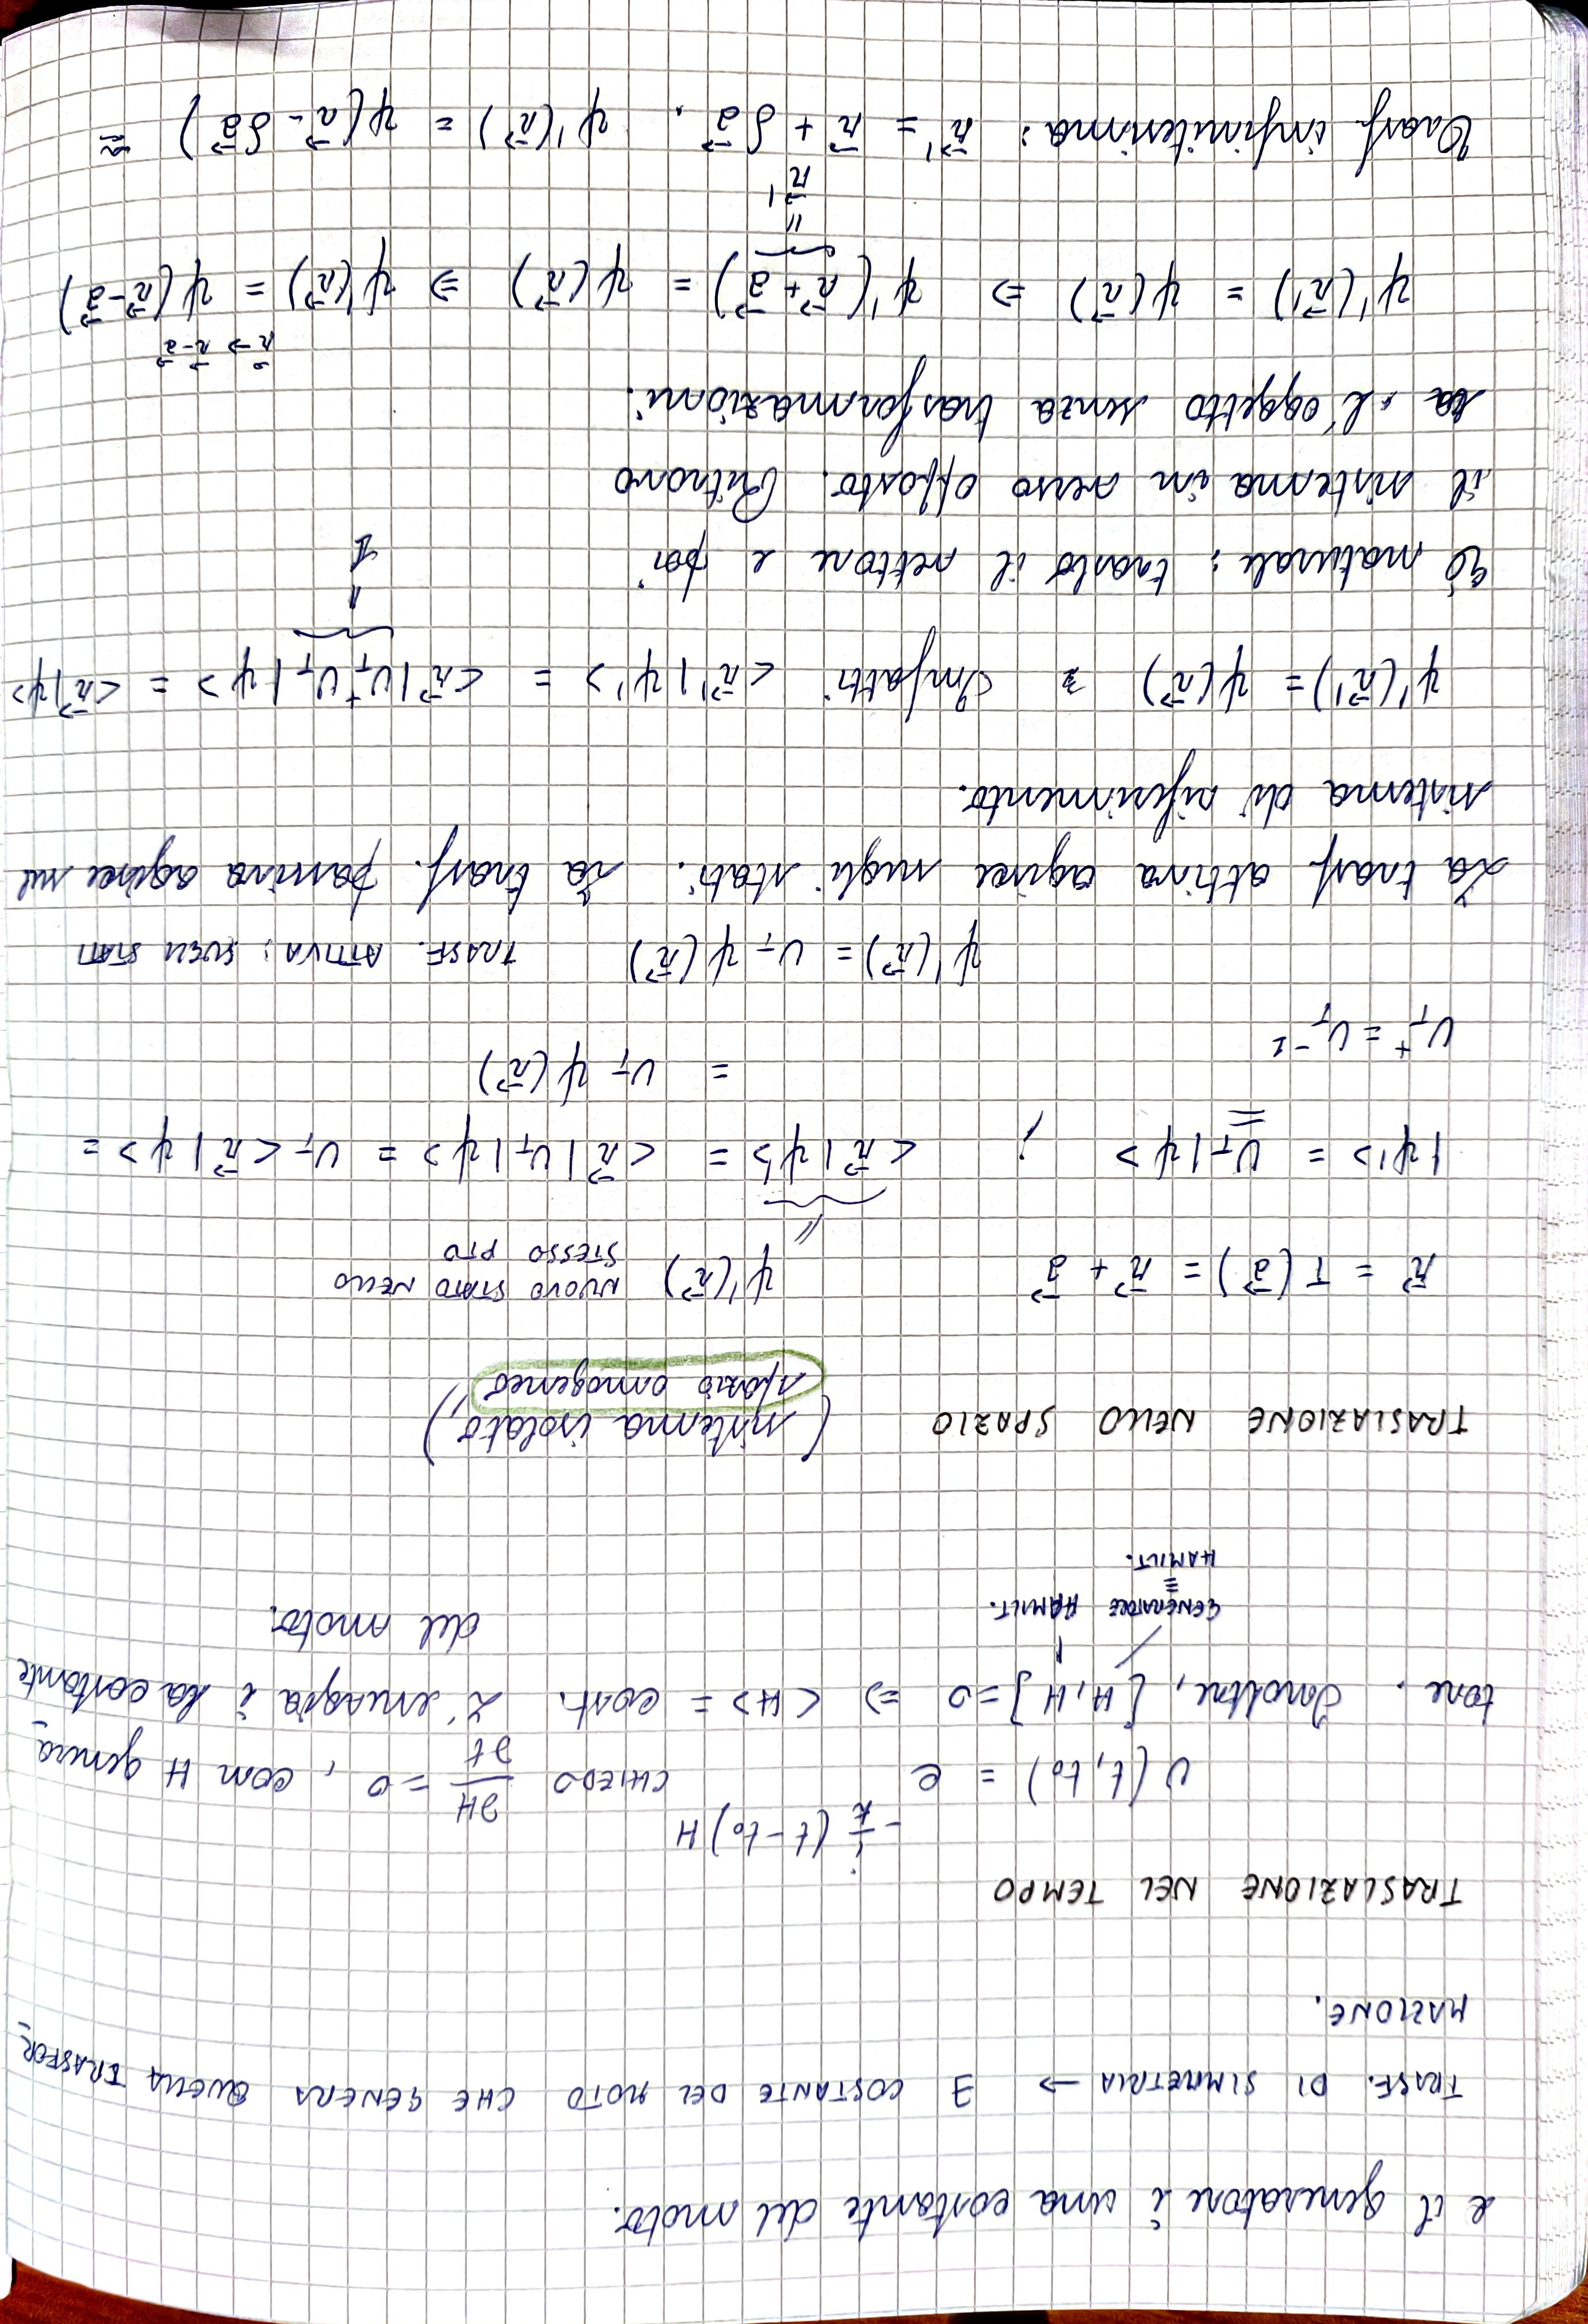 e il generatore è una costante del moto.
TRASF. DI SIMMETRIA → ∃ COSTANTE DEL MOTO CHE GENERA QUELLA TRASFOR_
MAZIONE.
TRASLAZIONE NEL TEMPO
U(t, t₀) = e^{-\frac{i}{ħ}(t-t₀)H} CHIEDO \frac{∂H}{∂t} = 0, con H genera_
tore. Inoltre, [H, H] = 0 ⇒ <H> = cost. L'energia è la costante
del moto.
GENERATORE HAMILT.
≡
HAMILT.
TRASLAZIONE NELLO SPAZIO (sistema isolato,
spazio omogeneo)
\vec{r} = T(\vec{a}) = \vec{r} + \vec{a} ψ'(\vec{r}) NUOVO STATO NELLO
STESSO PTO
"
|ψ'> = U_T|ψ> ; <\vec{r}|ψ'> = <\vec{r}|U_T|ψ> = U_T<\vec{r}|ψ> =
= U_T ψ(\vec{r})
U_T^+ = U_T^{-1}
ψ'(\vec{r}) = U_T ψ(\vec{r}) TRASF. ATTIVA: SUGLI STATI
La trasf. attiva agisce sugli stati. La trasf. passiva agisce sul
sistema di riferimento.
ψ'(\vec{r}') = ψ(\vec{r}) Infatti <\vec{r}'|ψ'> = <\vec{r}|U_T^+ U_T|ψ> = <\vec{r}|ψ>
"
1
È naturale: traslo il vettore e poi
il sistema in verso opposto. Ritrovo
l'oggetto senza trasformazioni.
\vec{r} → \vec{r}-\vec{a}
ψ'(\vec{r}') = ψ(\vec{r}) ⇒ ψ'(\vec{r}+\vec{a}) = ψ(\vec{r}) ⇒ ψ'(\vec{r}) = ψ(\vec{r}-\vec{a})
"
\vec{r}'
Trasf. infinitesima: \vec{r}' = \vec{r} + δ\vec{a}. ψ'(\vec{r}) = ψ(\vec{r}-δ\vec{a}) ≅